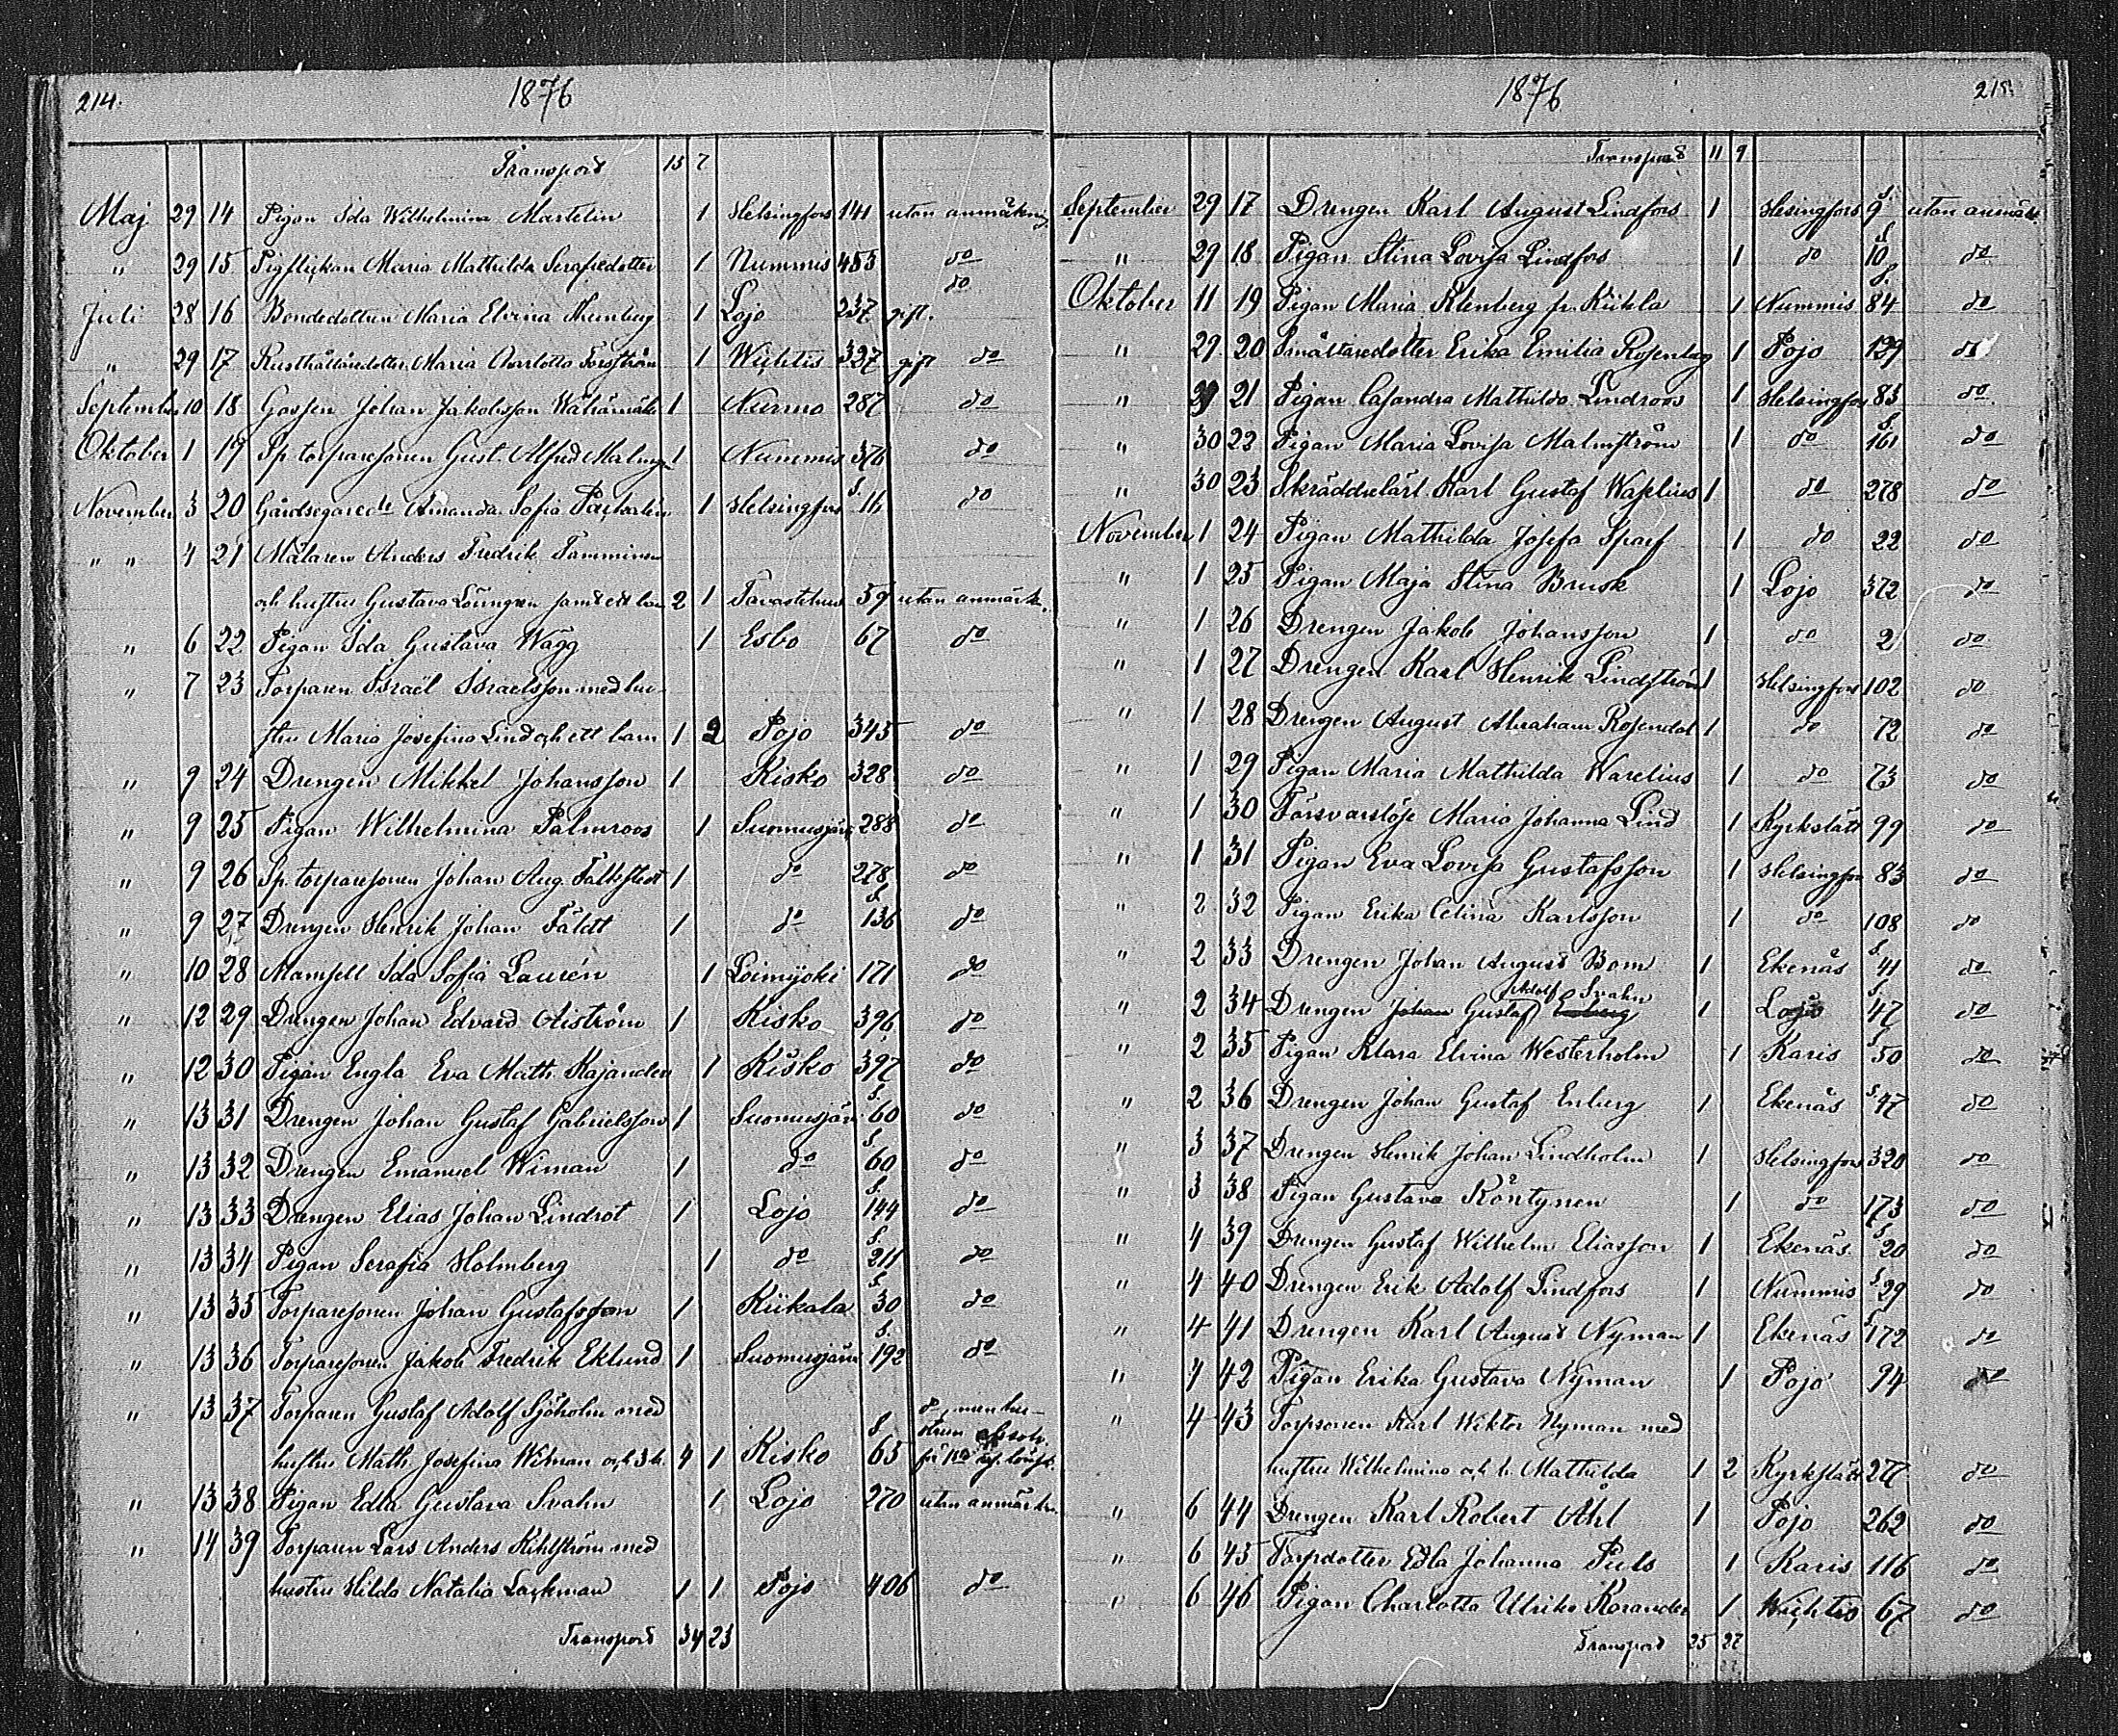 214.
1876
Transport 15 7
Maj 29 14 Pigan Ida Wilhelmina Martelin 1 Helsingfors 141 utan anmärkn.
" 29 15 Pigflickan Maria Mathilda Serafiedotter 1 Nummis 453 do
do
Juli 28 16 Bondedottren Maria Elvina 1 Lojo 237 gift.
" 29 17 Rusthållaredotter Maria Charlotta Forsström 1 Wichtis 327 gift do
September 10 18 Gossen Johan Jakobsson 1 Nurmo 287 do
Oktober 1 19 Sp. torparesonen Gust. Alfred Malmgren 1 Nummis 376 do
November 3 20 Gårdsegare dr Amanda Sofia 1 Helsingfors S. 16 do
" " 4 21 Målaren Anders Fredrik Tamminen
och hustru Gustava Löfvngren samt ett barn 2 1 Tavastehus 59 utan anmärk.
" 6 22 Pigan Ida Gustava Wägg 1 Esbo 67 do
" 7 23 Torparen Israël Israelsson med hu-
stru Maria Josefina Lind och ett barn 1 2 Pojo 345 do
" 9 24 Drengen Mikkel Johansson 1 Kisko 328 do
" 9 25 Pigan Wilhelmina Palmroos 1 Suomusjärvi 288 do
" 9 26 Sp. torparesonen Johan Aug. Fältstedt 1 do 278 do
" 9 27 Drengen Henrik Johan Fäldt 1 do S. 136 do
" 10 28 Mamsell Ida Sofia Laurén 1 Loimijoki 171 do
" 12 29 Drengen Johan Edvard Aiström 1 Kisko 396 do
" 12 30 Pigan Engla Eva Math. Kajander 1 Kisko 397 do
" 13 31 Drengen Johan Gustaf Gabrielsson 1 Suomusjärvi S. 60 do
" 13 32 Drengen Emanuel Wiman 1 do S. 60 do
" 13 33 Drengen Elias Johan Lindrot 1 Lojo S. 144 do
" 13 34 Pigan Serafia Holmberg 1 do S. 211 do
" 13 35 Torparesonen Johan Gustafsson 1 Kiikala S. 30 do
" 13 36 Torparesonen Jakob Fredrik Eklund 1 Suomusjärvi S. 192 do
" 13 37 Torparen Gustaf Adolf Sjöholm med do, men hu-
hustru Math. Josefina Wikman och 3 b. 4 1 Kisko S. 65 strun absolv.
" 13 38 Pigan Edla Gustava Svahn 1 Lojo 270 utan anmärkn.
" 14 39 Torparen Lars Anders Kihlström med
hustru Hilda Natalia Lackman 1 1 Pojo 406 do
Transport 34 23
1876
215.
Transport 11 9
September 29 17 Drengen Karl August Lindfors 1 Helsingfors S. 9 utan anmärk
" 29 18 Pigan Stina Lovisa Lindfors 1 do S. 10 do
Oktober 11 19 Pigan Maria Klenberg fr. Kiikla 1 Nummis S. 84 do
" 29 20 Småttaredotter Erika Emilia Rosenberg 1 Pojo 129 do
" 29 21 Pigan Casandra Mathilda Lindroos 1 Helsingfors 83 do
" 30 22 Pigan Maria Lovisa Malmström 1 do S. 161 do
" 30 23 Skräddrelärl. Karl Gustaf Waselius 1 do 278 do
November 1 24 Pigan Mathilda Josefa Sparf 1 do 22 do
" 1 25 Pigan Maja Stina Brusk 1 Lojo 372 do
" 1 26 Drengen Jakob Johansson 1 do 2 do
" 1 27 Drengen Karl Henrik Lindström 1 Helsingfors 102 do
" 1 28 Drengen August Abraham Rosendal 1 do 72 do
" 1 29 Pigan Maria Mathilda Warelius 1 do 73 do
" 1 30 Försvarslöse Maria Johanna Lind 1 Kyrkslätt 99 do
" 1 31 Pigan Eva Lovisa Gustafsson 1 Helsingfors 83 do
" 2 32 Pigan Erika Celina Karlsson 1 do 108 do
" 2 33 Drengen Johan August Bom 1 Ekenäs S. 41 do
Adolf Svahn
" 2 34 Drengen Johan Gustaf Enberg 1 Lojo S. 47 do
" 2 35 Pigan Klara Elvina Westerholm 1 Karis S. 50 do
" 2 36 Drengen Johan Gustaf Enberg 1 Ekenäs S. 47 do
" 3 37 Drengen Henrik Johan Lindholm 1 Helsingfors 320 do
" 3 38 Pigan Gustava Köntynen 1 do 173 do
" 4 39 Drengen Gustaf Wilhelm Eliasson 1 Ekenäs S. 20 do
" 4 40 Drengen Erik Adolf Lindfors 1 Nummis S. 29 do
" 4 41 Drengen Karl August Nyman 1 Ekenäs S. 172 do
" 4 42 Pigan Erika Gustava Nyman 1 Pojo 94 do
" 4 43 Torpsonen Karl Wiktor Nyman med
hustru Wilhelmina och b. Mathilda 1 2 Kyrkslätt 277 do
" 6 44 Drengen Karl Robert Åhl 1 Pojo 262 do
" 6 45 Torpdotter Edla Johanna Puls 1 Karis 116 do
" 6 46 Pigan Charlotta Ulrika Korander 1 Wichtis 67 do
Transport 25 27